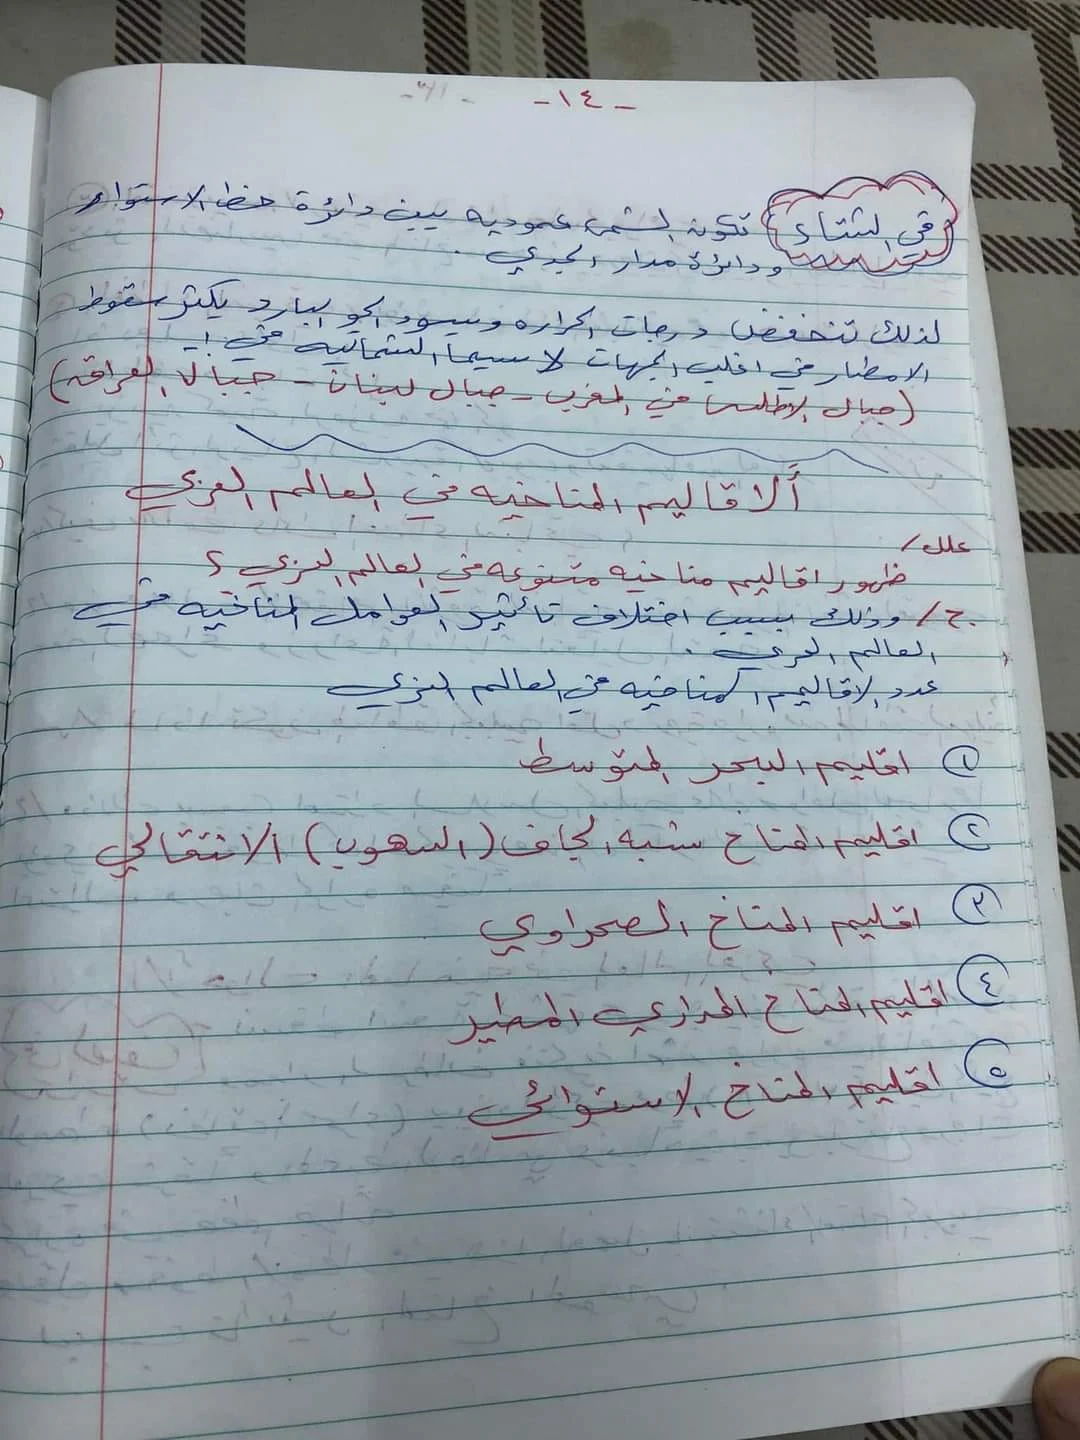 - ١٤ -
في الشتاء تكون الشمس عموديه بين دائرة خط الاستواء
ودائرة مدار الجدي .
لذلك تنخفض درجات الحراره ويسود الجو البارد يكثر سقوط
الامطار في اغلب الجهات لاسيما الشماليه في :-
(جبال الاطلس في المغرب - جبال لبنان - جبال العراق)
ألاقاليم المناخيه في العالم العربي
علل /
ظهور اقاليم مناخيه متنوعه في العالم العربي ؟
ج / وذلك بسبب اختلاف تأثير العوامل المناخيه في
العالم العربي .
عدد الاقاليم المناخيه في العالم العربي
١ اقليم البحر المتوسط
٢ اقليم المناخ شبه الجاف (السهوب) الانتقالي
٣ اقليم المناخ الصحراوي
٤ اقليم المناخ المداري المطير
٥ اقليم المناخ الاستوائي